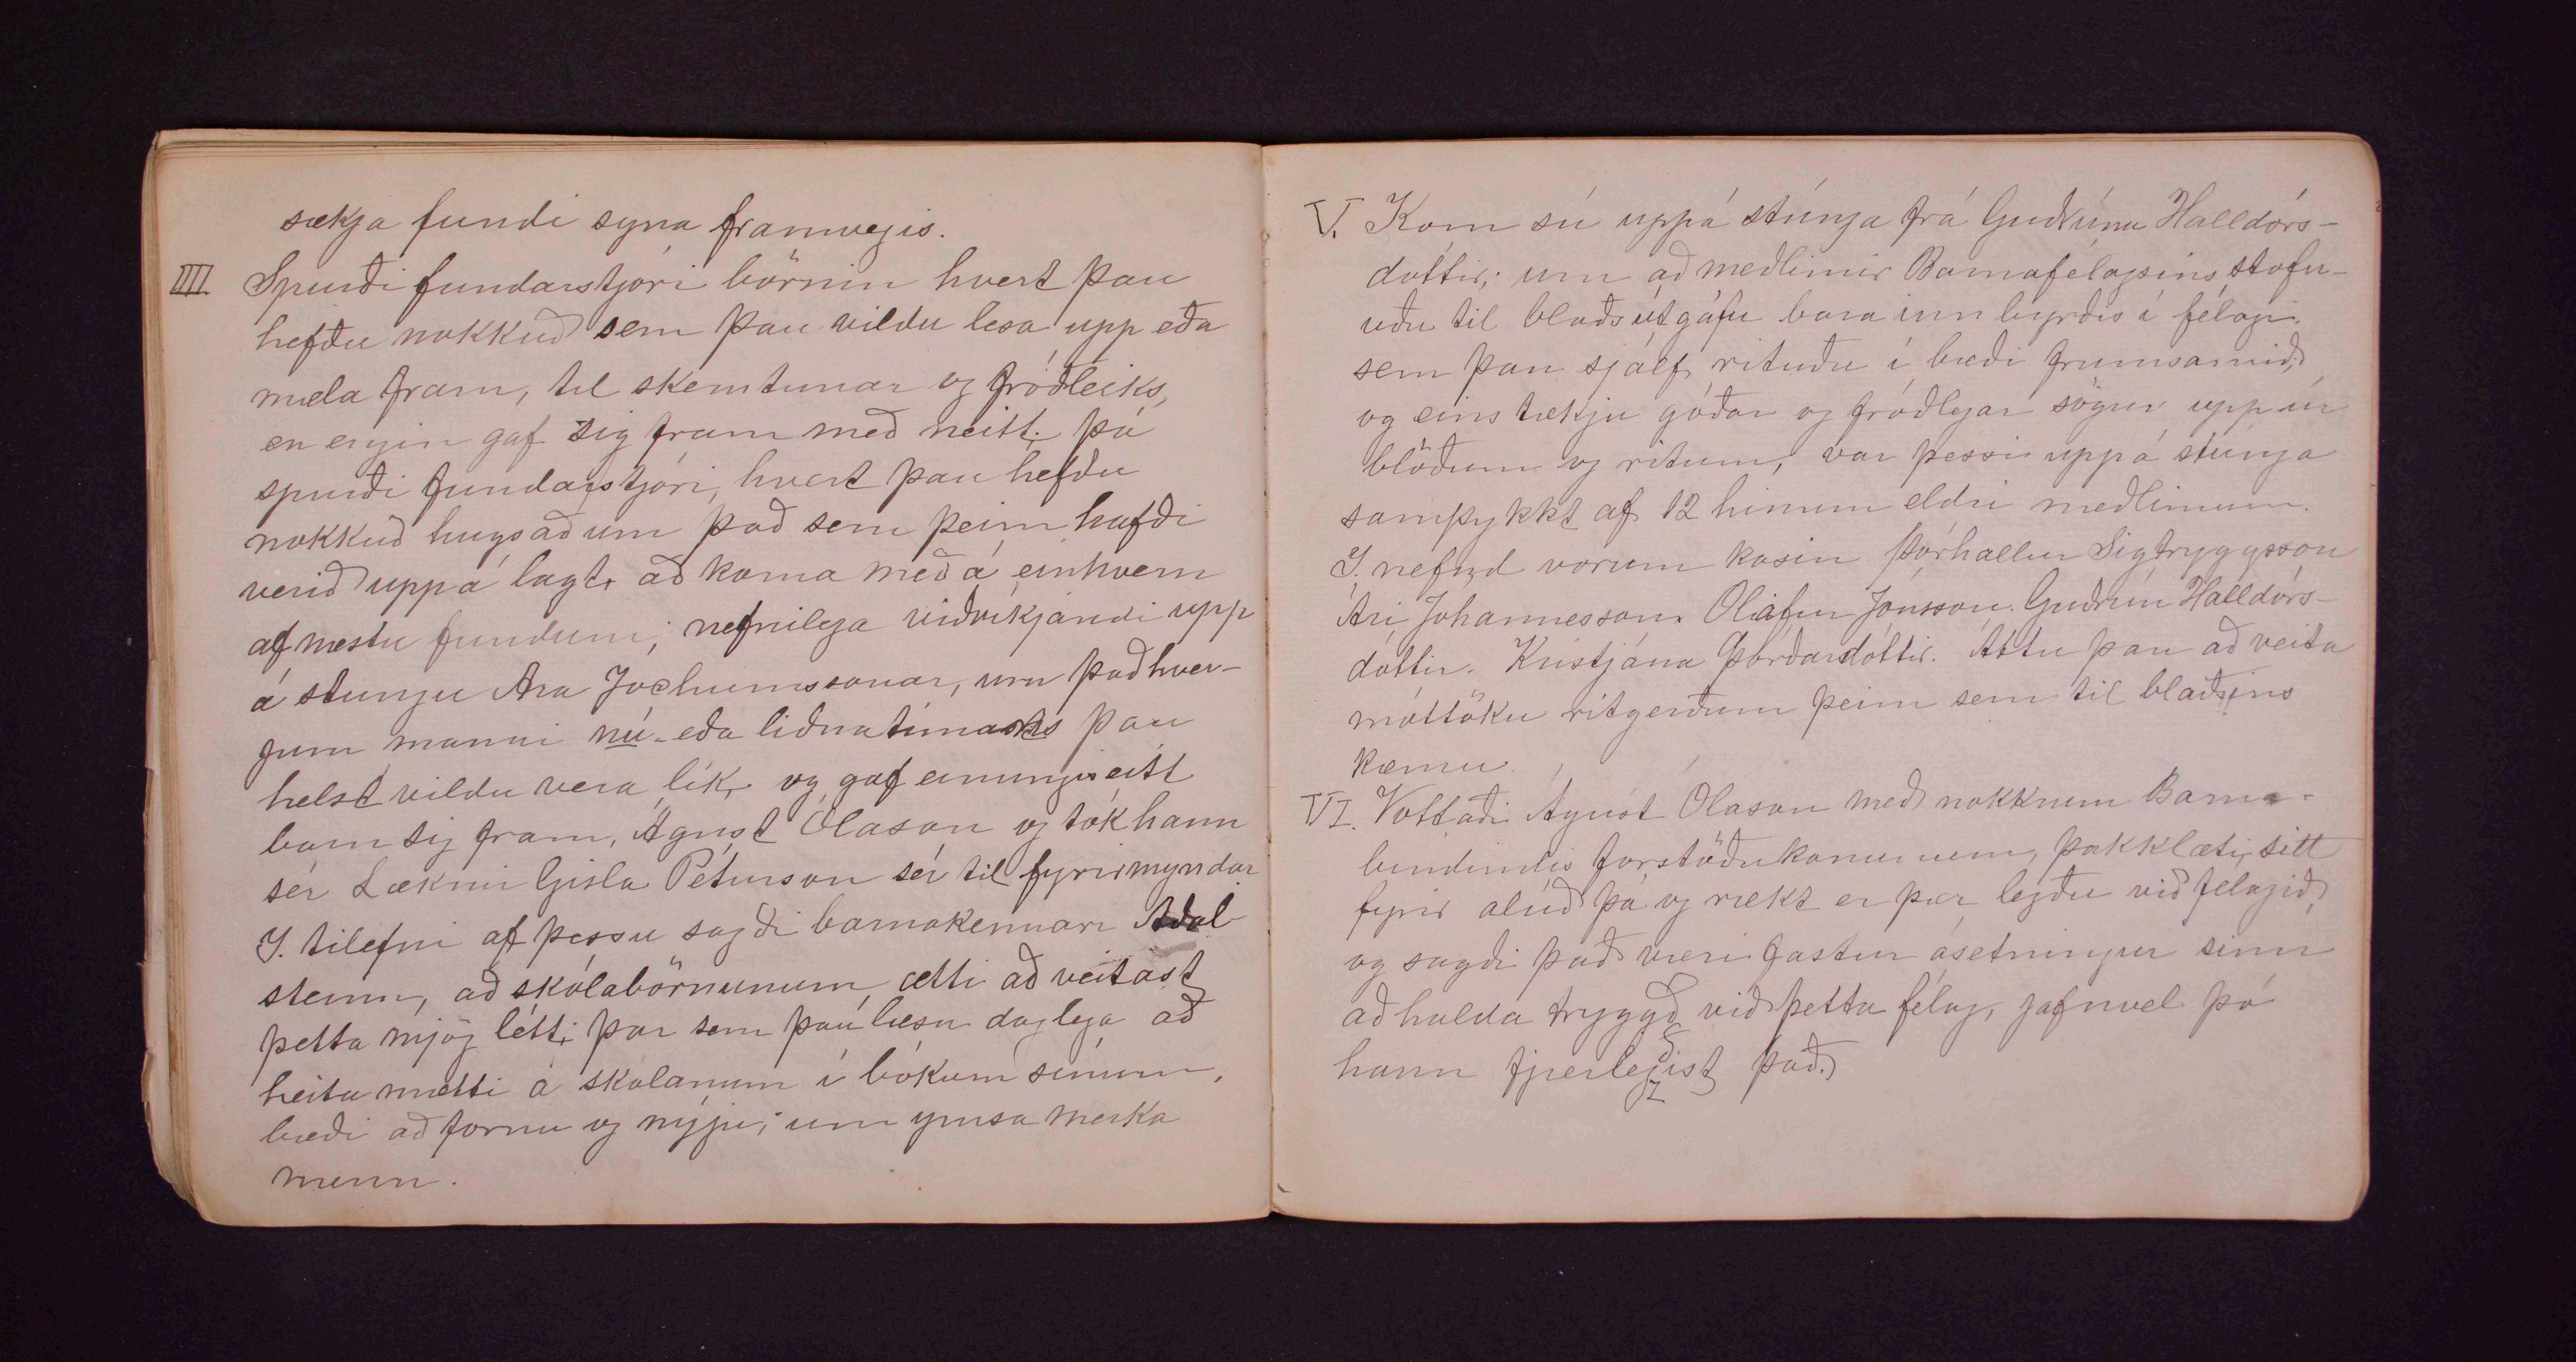 sækja fundi syna framvegis.
IIII Spurði fundarstjóri börnin hvert þau
hefðu nokkuð sem þau vildu lesa upp eða
mæla fram, til skemtunar og fróðleiks,
en engin gaf sig fram með neitt. þá
spurði fundarstjóri, hvert þau hefðu
nokkuð hugsað um það sem þeim hafði
verið uppá lagt, að koma með á einhvern
af næstu fundum; nefnilega viðvíkjandi upp
á stungu Ara Jochumssonar, um það hver-
jum manni nú- eða liðnatímans þau
helst vildu vera lík, og gaf einungis eitt
barn sig fram, Águst Ólason og tók hann
sér Læknir Gísla Pétursson sér til fyrirmyndar
I. tilefni af þessu sagði barnakennari Aðal
steinn, að skólabörnunum ætti að veitast
þetta mjög létt, þar sem þau læsu daglega að
heita mætti á skólanum í bókum sínum,
bæði að fornu og nýju; um ymsa merka
menn.
V. Kom sú uppá stúnga frá Guðrúnu Halldórs-
dóttir; um að meðlimir Barnafélagsins stofn-
uðu til blaðsútgáfu bara innbyrðis í félagi.
sem þau sjálf rituðu í bæði frumsamið,
og eins tækju góðar og fróðlegar sögur upp úr
blöðum og ritum, var þessi uppá stúnga
samþykkt af 12 hinum eldri meðlimum.
I. nefnd vorum kosin Þórhallur Sigtryggsson
Ari Jóhannesson. Ólafur Jónsson. Guðrún Halldórs-
dóttir. Kristjána Þórðardóttir. Áttu þau að veita
móttöku ritgerðum þeim sem til blaðsins
kæmu.
VI. Vottaði Ágúst Ólason með nokkrum Barna-
bindindis forstöðukonunum, þakklæti sitt
fyrir alúð þá og rækt er þær legðu við felagið,
og sagði það væri fastur ásetningur sinn
að halda tryggð við þetta félag, jafnvel þó
hann fjærlegist það.